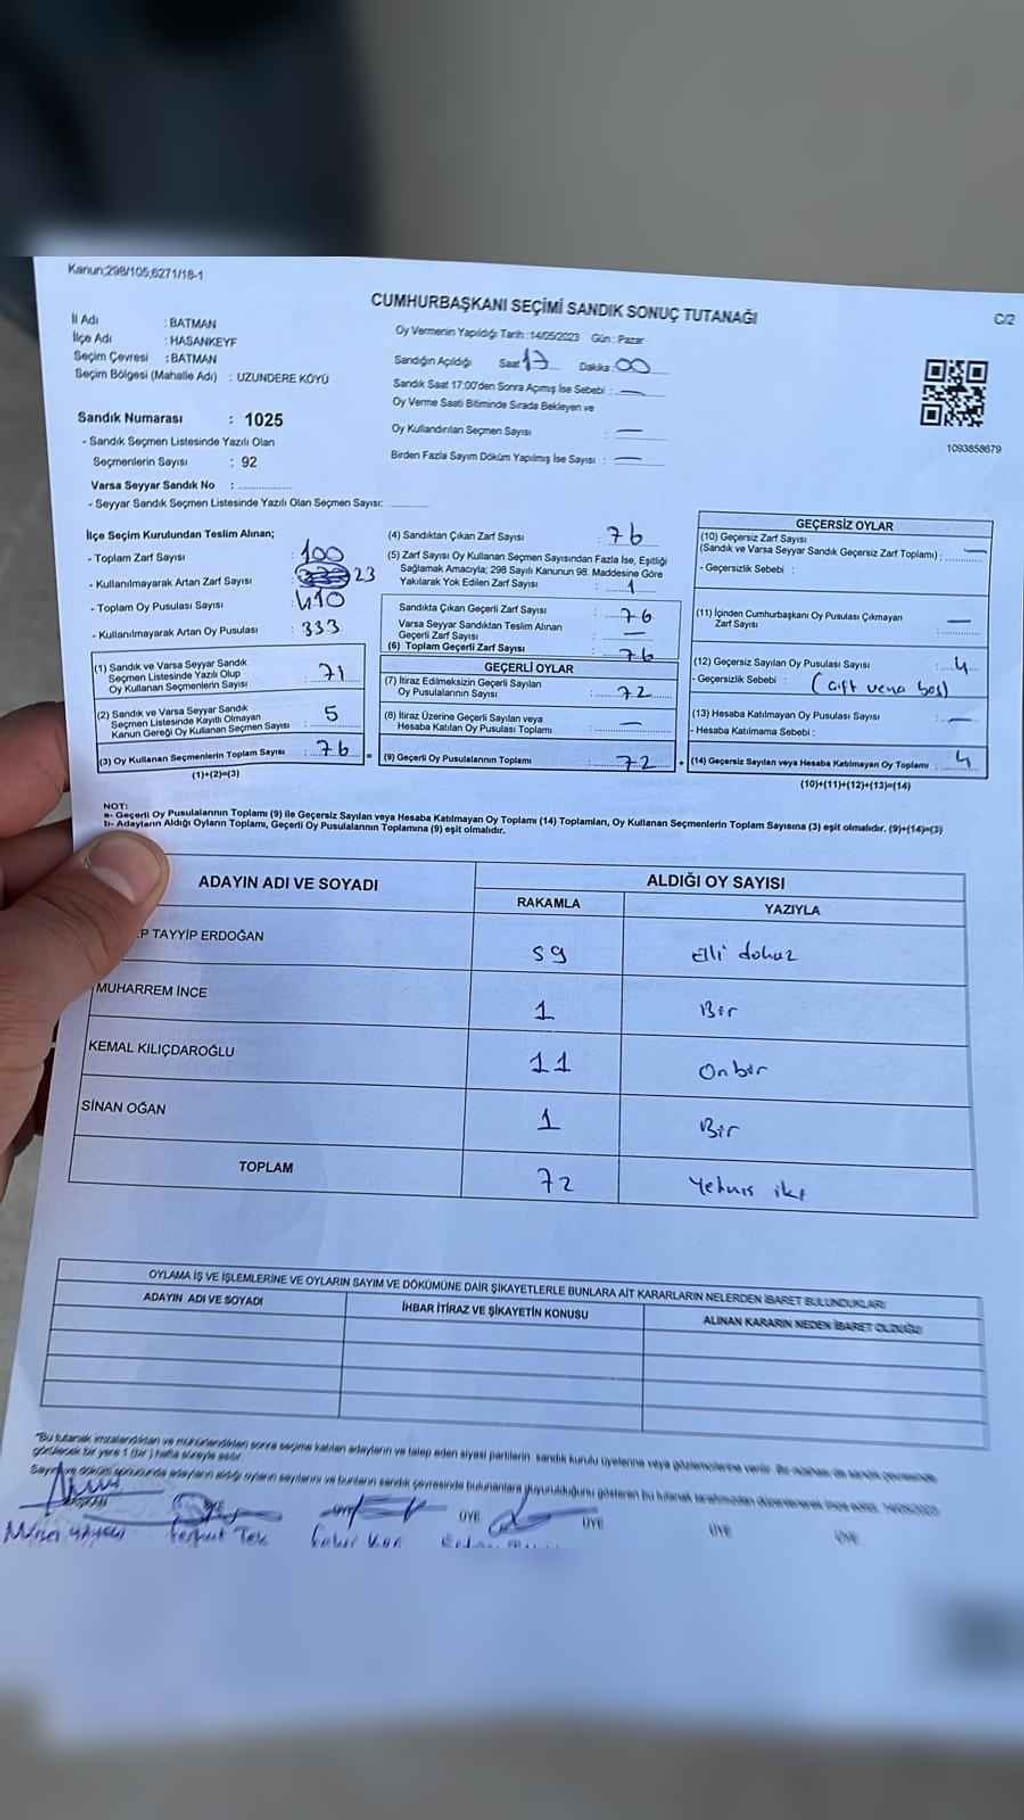 Kanun;298/105;6271/18-1
CUMHURBAŞKANI SEÇİMİ SANDIK SONUÇ TUTANAĞI
C/2
İl Adı : BATMAN
İlçe Adı : HASANKEYF
Seçim Çevresi : BATMAN
Seçim Bölgesi (Mahalle Adı) : UZUNDERE KÖYÜ
Oy Vermenin Yapıldığı Tarih :14/05/2023 Gün : Pazar
Sandığın Açıldığı Saat 17 Dakika 00
Sandık Saat 17:00'den Sonra Açımış İse Sebebi : —
Oy Verme Saati Bitiminde Sırada Bekleyen ve
Oy Kullandırılan Seçmen Sayısı : —
Birden Fazla Sayım Döküm Yapılmış İse Sayısı : —
1093858679
Sandık Numarası : 1025
- Sandık Seçmen Listesinde Yazılı Olan
Seçmenlerin Sayısı : 92
Varsa Seyyar Sandık No :
- Seyyar Sandık Seçmen Listesinde Yazılı Olan Seçmen Sayısı:
İlçe Seçim Kurulundan Teslim Alınan;
- Toplam Zarf Sayısı : 100
- Kullanılmayarak Artan Zarf Sayısı : 23
- Toplam Oy Pusulası Sayısı : 410
- Kullanılmayarak Artan Oy Pusulası : 333
(1) Sandık ve Varsa Seyyar Sandık
Seçmen Listesinde Yazılı Olup
Oy Kullanan Seçmenlerin Sayısı : 71
(2) Sandık ve Varsa Seyyar Sandık
Seçmen Listesinde Kayıtlı Olmayan
Kanun Gereği Oy Kullanan Seçmen Sayısı : 5
(3) Oy Kullanan Seçmenlerin Toplam Sayısı : 76
(1)+(2)=(3)
(4) Sandıktan Çıkan Zarf Sayısı : 76
(5) Zarf Sayısı Oy Kullanan Seçmen Sayısından Fazla İse, Eşitliği
Sağlamak Amacıyla; 298 Sayılı Kanunun 98. Maddesine Göre
Yakılarak Yok Edilen Zarf Sayısı : 1
Sandıkta Çıkan Geçerli Zarf Sayısı : 76
Varsa Seyyar Sandıktan Teslim Alınan
Geçerli Zarf Sayısı : —
(6) Toplam Geçerli Zarf Sayısı : 76
GEÇERLİ OYLAR
(7) İtiraz Edilmeksizin Geçerli Sayılan
Oy Pusulalarının Sayısı : 72
(8) İtiraz Üzerine Geçerli Sayılan veya
Hesaba Katılan Oy Pusulası Toplamı : —
(9) Geçerli Oy Pusulalarının Toplamı : 72
GEÇERSİZ OYLAR
(10) Geçersiz Zarf Sayısı
(Sandık ve Varsa Seyyar Sandık Geçersiz Zarf Toplamı) : —
- Geçersizlik Sebebi :
(11) İçinden Cumhurbaşkanı Oy Pusulası Çıkmayan
Zarf Sayısı : —
(12) Geçersiz Sayılan Oy Pusulası Sayısı : 4
- Geçersizlik Sebebi : (çift veya boş)
(13) Hesaba Katılmayan Oy Pusulası Sayısı : —
- Hesaba Katılmama Sebebi :
(14) Geçersiz Sayılan veya Hesaba Katılmayan Oy Toplamı : 4
(10)+(11)+(12)+(13)=(14)
NOT:
a- Geçerli Oy Pusulalarının Toplamı (9) ile Geçersiz Sayılan veya Hesaba Katılmayan Oy Toplamı (14) Toplamları, Oy Kullanan Seçmenlerin Toplam Sayısına (3) eşit olmalıdır. (9)+(14)=(3)
b- Adayların Aldığı Oyların Toplamı, Geçerli Oy Pusulalarının Toplamına (9) eşit olmalıdır.
ADAYIN ADI VE SOYADI
ALDIĞI OY SAYISI
RAKAMLA YAZIYLA
P TAYYİP ERDOĞAN 59 Elli dokuz
MUHARREM İNCE 1 Bir
KEMAL KILIÇDAROĞLU 11 Onbir
SİNAN OĞAN 1 Bir
TOPLAM 72 Yetmiş iki
OYLAMA İŞ VE İŞLEMLERİNE VE OYLARIN SAYIM VE DÖKÜMÜNE DAİR ŞİKAYETLERLE BUNLARA AİT KARARLARIN NELERDEN İBARET BULUNDUKLARI
ADAYIN ADI VE SOYADI İHBAR İTİRAZ VE ŞİKAYETİN KONUSU ALINAN KARARIN NEDEN İBARET OLDUĞU
"Bu tutanak imzalandıktan ve mühürlendikten sonra seçime katılan adayların ve talep eden siyasi partilerin sandık kurulu üyelerine veya gözlemcilerine verilir.
görülecek bir yere 1 (bir) hafta süreyle asılır.
Sayım ve döküm sonucunda adayların aldığı oyların sayılarını ve bunların sandık çevresinde bulunanlara duyurulduğunu gösteren bu tutanak tarafımızdan
ÜYE ÜYE ÜYE ÜYE
Tek